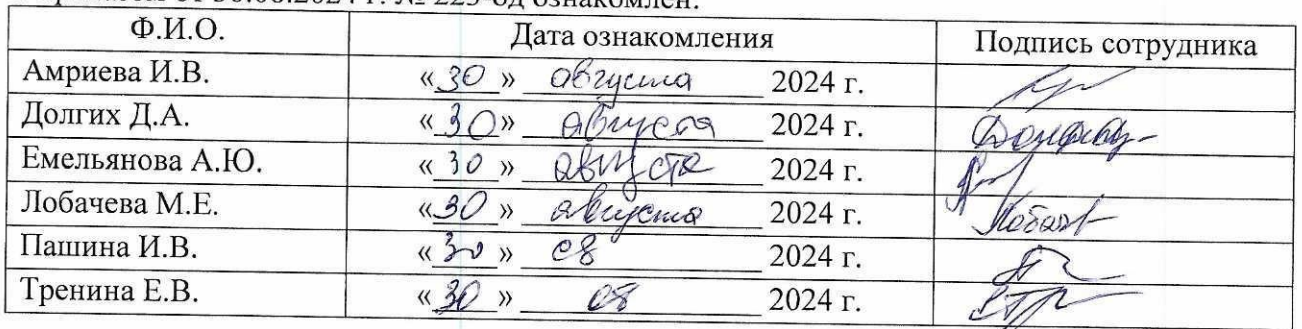 от 30.08.2024 г. № 223-од ознакомлен:
Ф.И.О. Дата ознакомления Подпись сотрудника
Амриева И.В. «30» августа 2024 г.
Долгих Д.А. «30» августа 2024 г.
Емельянова А.Ю. «30» августа 2024 г.
Лобачева М.Е. «30» августа 2024 г.
Пашина И.В. «30» 08 2024 г.
Тренина Е.В. «30» 08 2024 г.